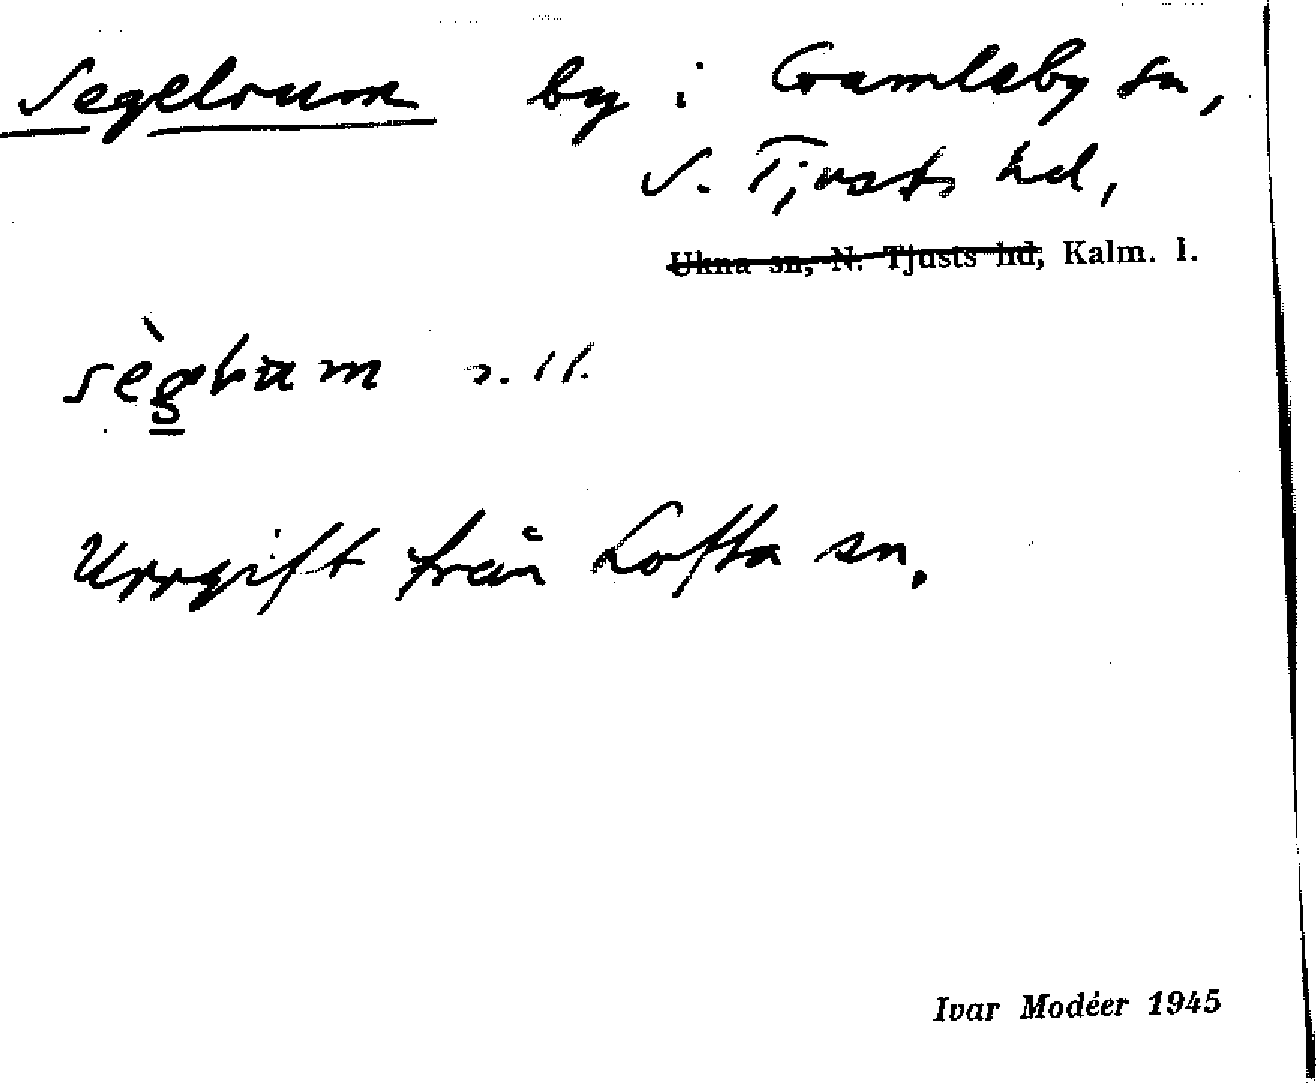 Segelrum by i Gamleby sn,
S. Tjusts hd,
Ukna sn, N. Tjusts hd, Kalm. l.
Uppgift från Lofta sn.
Ivar Modéer 1945